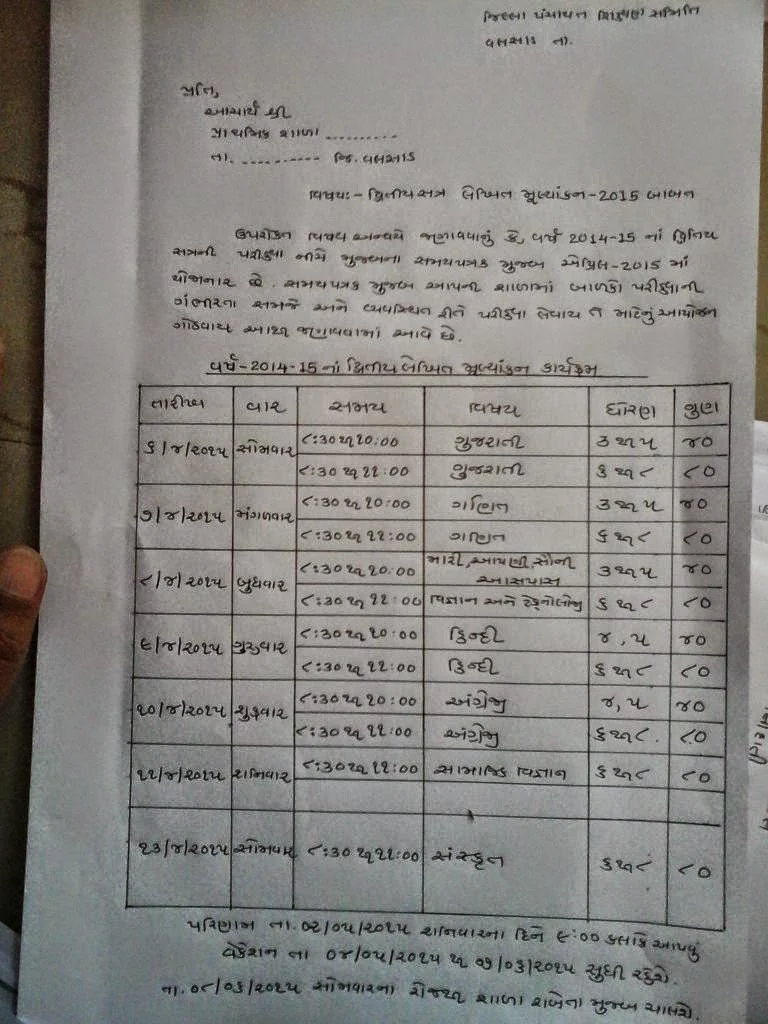 જિલ્લા પંચાયત શિક્ષણ સમિતિ
વલસાડ તા.
પ્રતિ,
આચાર્ય શ્રી
પ્રાથમિક શાળા ..........
તા. ........... જિ. વલસાડ
વિષય:- દ્વિતીય સત્ર લેખિત મૂલ્યાંકન-2015 બાબત
ઉપરોક્ત વિષય અન્વયે જણાવવાનું કે, વર્ષ 2014-15 નાં દ્વિતિય
સત્રની પરીક્ષા નીચે મુજબના સમયપત્રક મુજબ એપ્રિલ-2015 માં
યોજનાર છે. સમયપત્રક મુજબ આપની શાળામાં બાળકો પરીક્ષાની
ગંભીરતા સમજે અને વ્યવસ્થિત રીતે પરીક્ષા લેવાય તે માટેનું આયોજન
ગોઠવાય આથી જણાવવામાં આવે છે.
વર્ષ-2014-15 નાં દ્વિતીય લેખિત મૂલ્યાંકન કાર્યક્રમ
તારીખ વાર સમય વિષય ધોરણ ગુણ
૬/૪/૨૦૧૫ સોમવાર ૮:30 થી ૧૦:00 ગુજરાતી ૩ થી ૫ ૪૦
૮:30 થી ૧૧:00 ગુજરાતી ૬ થી ૮ ૮૦
૭/૪/૨૦૧૫ મંગળવાર ૮:30 થી ૧૦:00 ગણિત ૩ થી ૫ ૪૦
૮:30 થી ૧૧:00 ગણિત ૬ થી ૮ ૮૦
૮/૪/૨૦૧૫ બુધવાર ૮:30 થી ૧૦:00 મારી, આપણી, સૌની આસપાસ ૩ થી ૫ ૪૦
૮:30 થી ૧૧:00 વિજ્ઞાન અને ટેક્નોલોજી ૬ થી ૮ ૮૦
૯/૪/૨૦૧૫ ગુરુવાર ૮:30 થી ૧૦:00 હિન્દી ૪,૫ ૪૦
૮:30 થી ૧૧:00 હિન્દી ૬ થી ૮ ૮૦
૧૦/૪/૨૦૧૫ શુક્રવાર ૮:30 થી ૧૦:00 અંગ્રેજી ૪,૫ ૪૦
૮:30 થી ૧૧:00 અંગ્રેજી ૬ થી ૮. ૮૦
૧૧/૪/૨૦૧૫ શનિવાર ૮:30 થી ૧૧:00 સામાજિક વિજ્ઞાન ૬ થી ૮ ૮૦
૧૩/૪/૨૦૧૫ સોમવાર ૮:30 થી ૧૧:00 સંસ્કૃત ૬ થી ૮ ૮૦
પરિણામ તા. ૦૨/૦૫/૨૦૧૫ શનિવારના દિને ૯:00 કલાકે આપવું
વેકેશન તા ૦૪/૦૫/૨૦૧૫ થી ૦૭/૦૬/૨૦૧૫ સુધી રહેશે.
તા. ૦૮/૦૬/૨૦૧૫ સોમવારના રોજથી શાળા રાબેતા મુજબ ચાલશે.